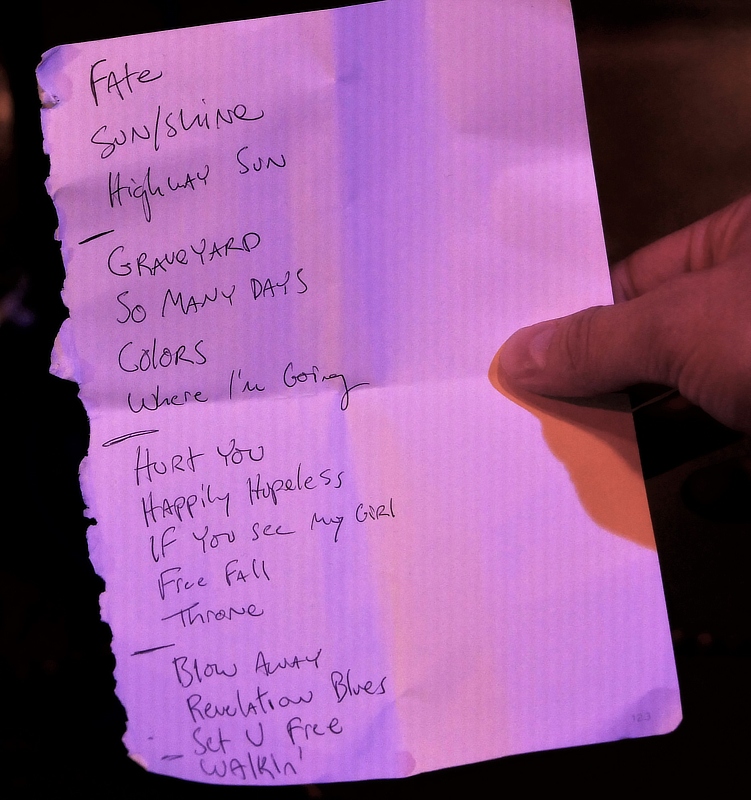 FAte
SUN/SHiNe
HigHwAY SuN
GRAveYARD
So MANY DAYS
ColoRS
Where I'm Going
HURt YOU
HAppily Hopeless
IF You see My GiRl
Free FAll
Throne
Blow AwAY
Revelation Blues
Set U Free
WAlkin'
123